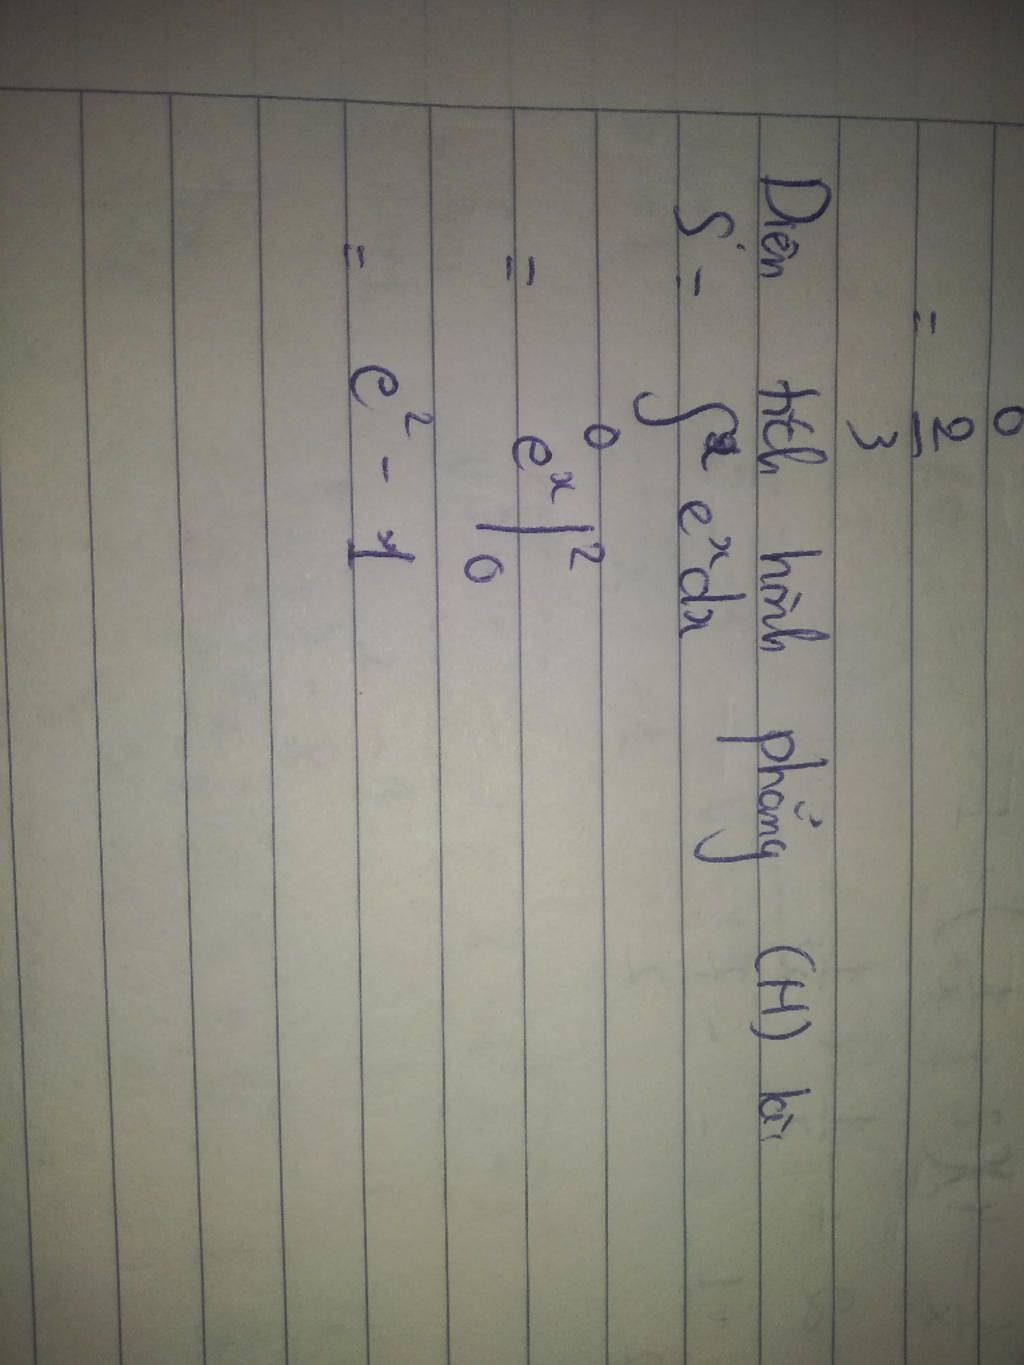 0
= 2/3
Diện tích hình phẳng (H) là
S = ∫ e^x dx
0
= e^x |_0^2
= e^2 - 1